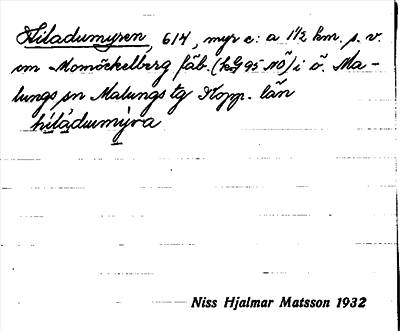 Hiladumyren, 614, myr c:a 1 1/2 km. s. v.
om Momöckelberg fäb. (kG 95 NO) i ö. Ma-
lungs sn Malungs tg Kopp. län
hiladumyra
Niss Hjalmar Matsson 1932